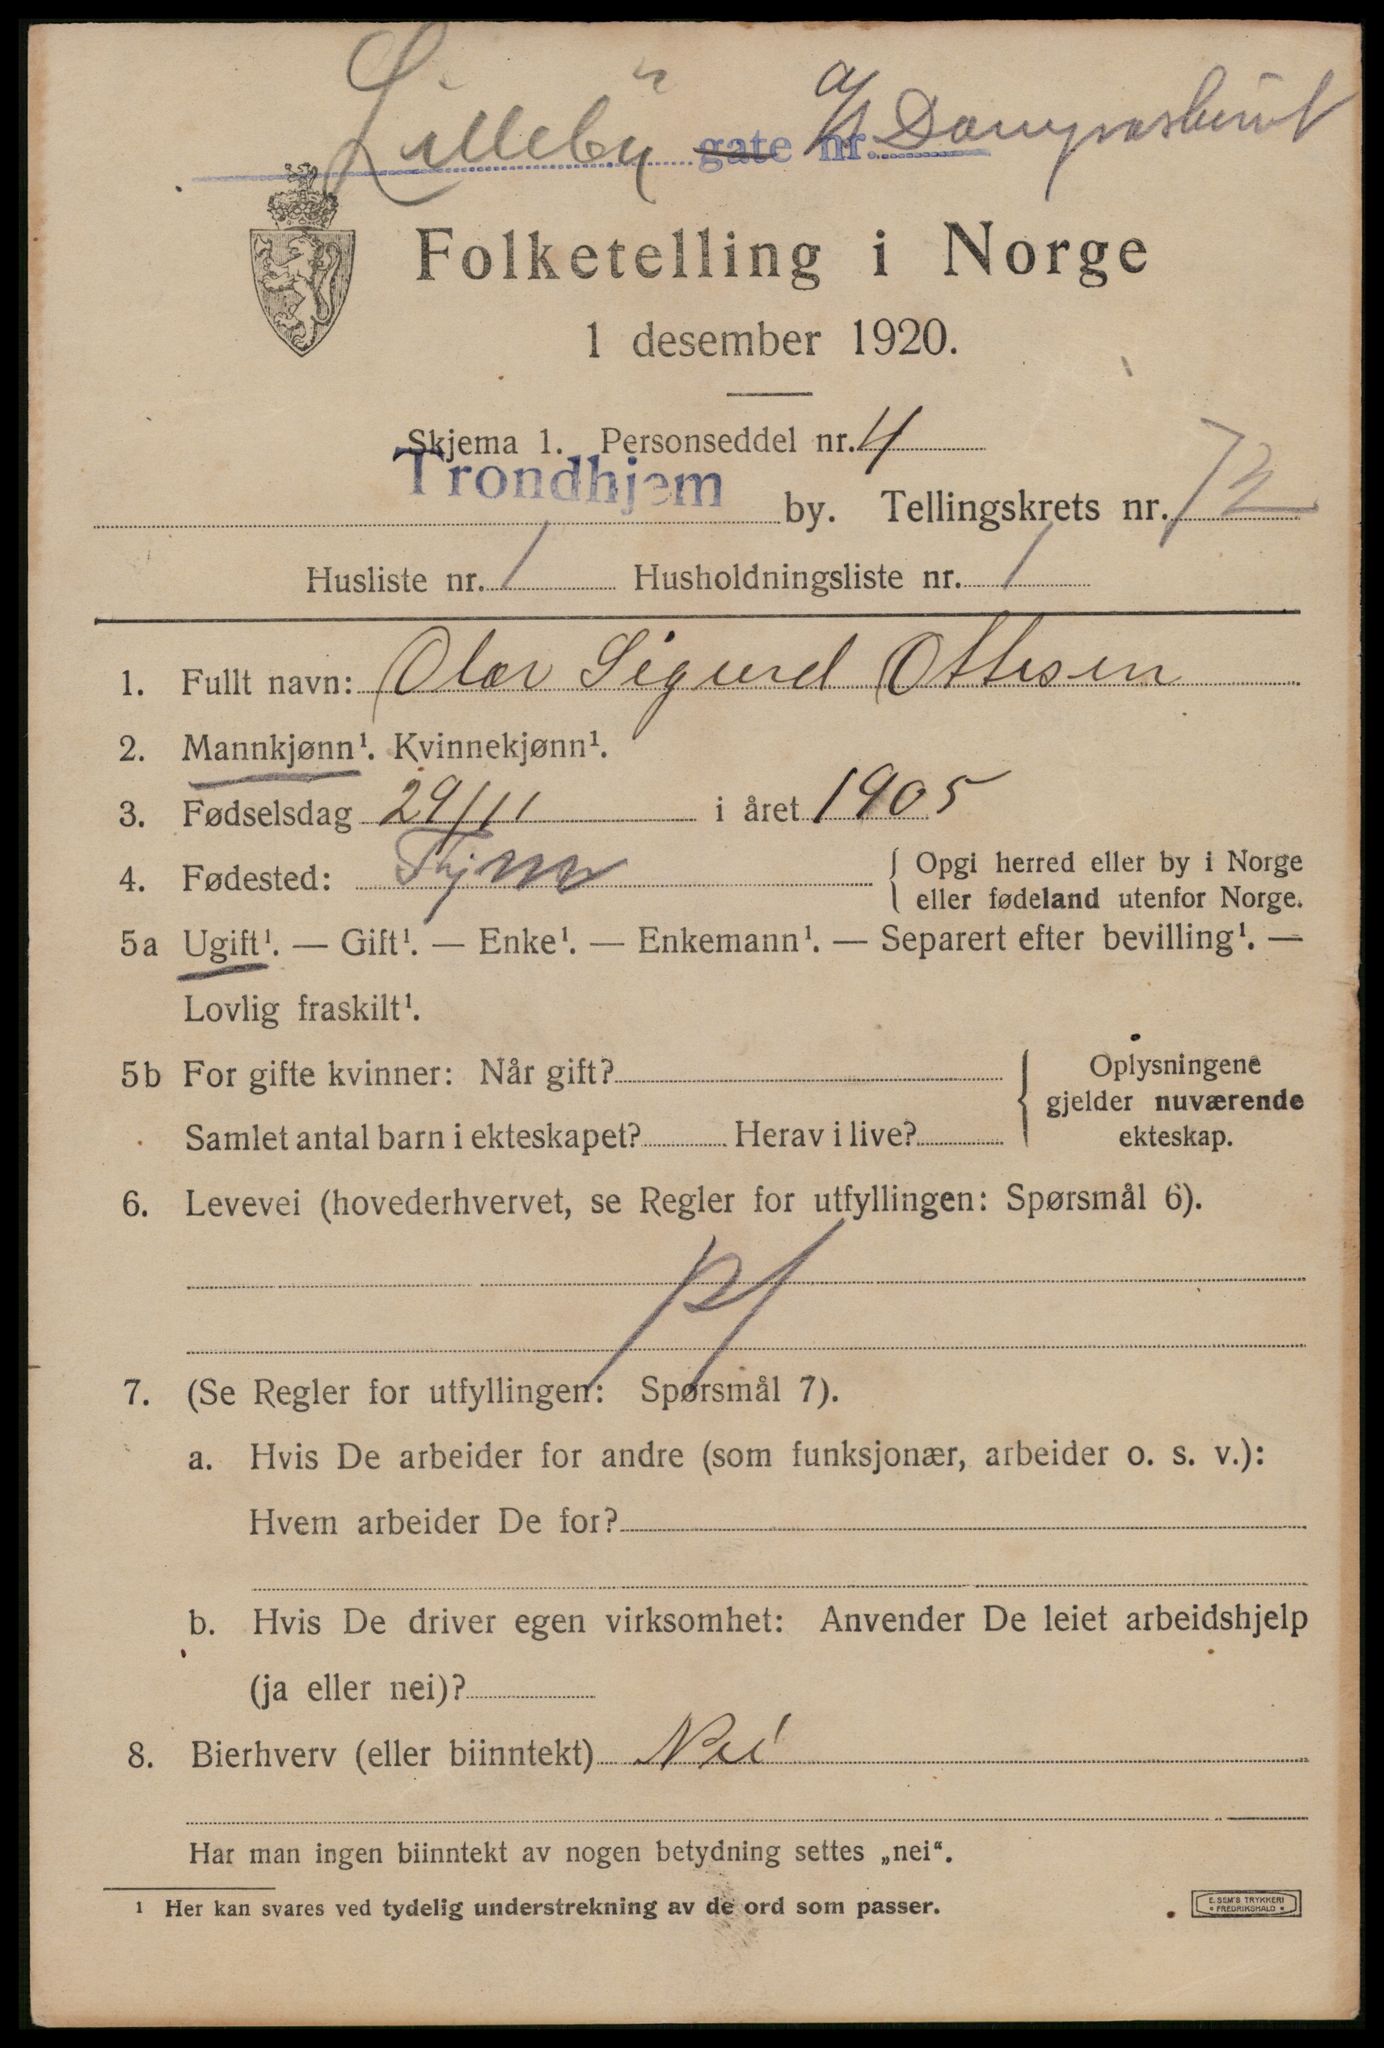 Lilleby gate nr. a/s Dampvaskeriet
Folketelling i Norge
1 desember 1920.
Skjema 1. Personseddel nr. 4
Trondhjem by. Tellingskrets nr. 72
Husliste nr. 1 Husholdningsliste nr. 1
1. Fullt navn: Olav Sigurd Ottesen
2. Mannkjønn¹. Kvinnekjønn¹.
3. Fødselsdag 29/11 i året 1905
4. Fødested: Thjem { Opgi herred eller by i Norge
eller fødeland utenfor Norge.
5a Ugift¹. — Gift¹. — Enke¹. — Enkemann¹. — Separert efter bevilling¹. —
Lovlig fraskilt¹.
5b For gifte kvinner: Når gift?
Samlet antal barn i ekteskapet? Herav i live?
{ Oplysningene
gjelder nuværende
ekteskap.
6. Levevei (hovederhvervet, se Regler for utfyllingen: Spørsmål 6).
7. (Se Regler for utfyllingen: Spørsmål 7).
a. Hvis De arbeider for andre (som funksjonær, arbeider o. s. v.):
Hvem arbeider De for?
b. Hvis De driver egen virksomhet: Anvender De leiet arbeidshjelp
(ja eller nei)?
8. Bierhverv (eller biinntekt) Nei
Har man ingen biinntekt av nogen betydning settes „nei“.
¹ Her kan svares ved tydelig understrekning av de ord som passer.
E. SEM'S TRYKKERI
• FREDRIKSHALD •